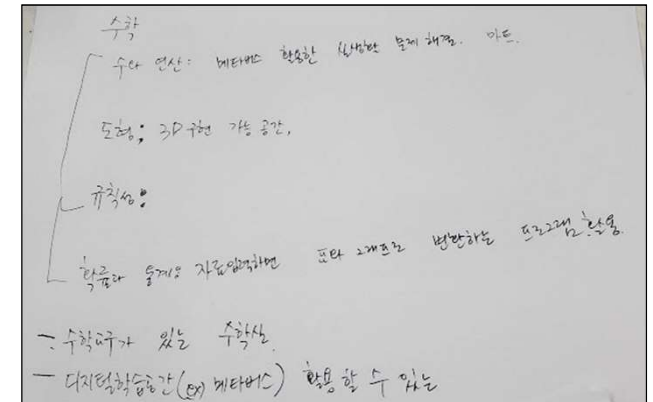 수학
수와 연산: 메타버스 활용한 실생활 문제해결. 마트.
도형: 3D구현 가능 공간.
규칙성:
확률과 통계: 자료입력하면 표와 그래프로 변환하는 프로그램 활용.
- 수학교구가 있는 수학실
- 디지털학습공간(ex) 메타버스) 활용할 수 있는